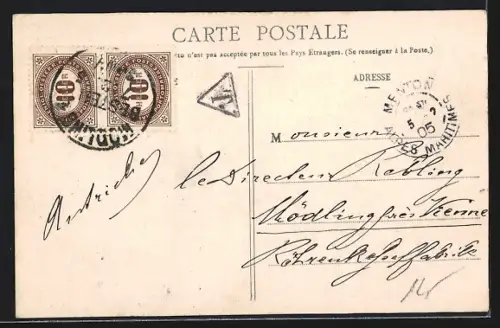 CARTE POSTALE
n'est pas acceptée par tous les Pays Etrangers. (Se renseigner à la Poste.)
ADRESSE
10 10
T
MENTON
5
05
ALPES MARITIMES
Monsieur
le Directeur
Mödling près Vienne
Autriche